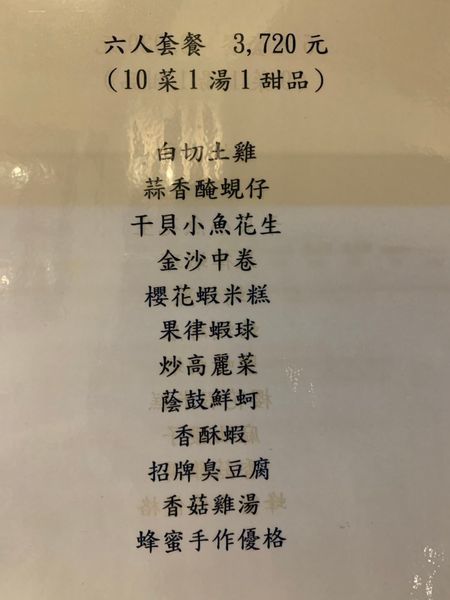 六人套餐 3,720 元
(10 菜 1 湯 1 甜品)
白切土雞
蒜香醃蜆仔
干貝小魚花生
金沙中卷
櫻花蝦米糕
果律蝦球
炒高麗菜
蔭鼓鮮蚵
香酥蝦
招牌臭豆腐
香菇雞湯
蜂蜜手作優格